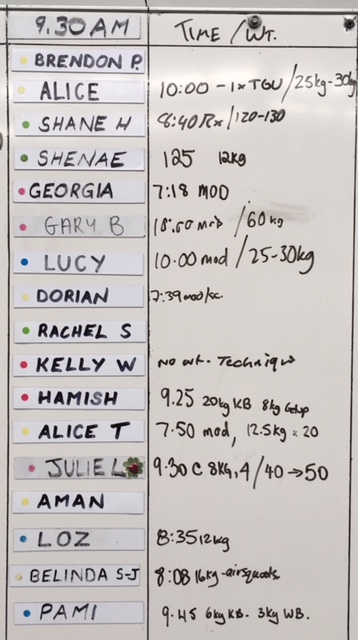 9.30 AM TIME / WT.
BRENDON P.
ALICE 10:00 - 1x TGU / 25kg-30kg
SHANE H 8:40 Rx / 120-130
SHENAE 125 12kg
GEORGIA 7:18 MOD
GARY B mod / 60 kg
LUCY 10.00 mod / 25-30kg
DORIAN 7:39 mod/sc
RACHEL S
KELLY W NO WT. - Technique
HAMISH 9.25 20kg KB 8kg Getup
ALICE T 7.50 mod, 12.5kg x 20
JULIE L 9.30 C 8KG, 4 / 40 → 50
AMAN
LOZ 8:35 12kg
BELINDA S-J 8:08 16kg - airsquats
PAMI 9.45 6kg KB. 3kg WB.